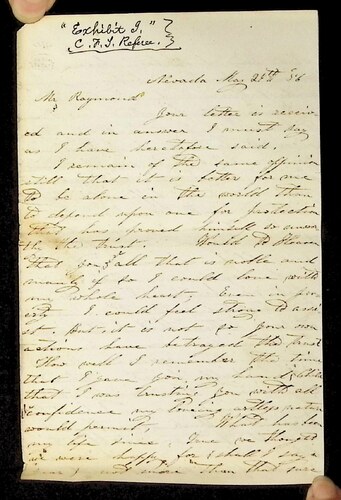 "Exhibit I."
C. F. I. Referee.
Nevada May 25th 56
Mr Raymond
Your letter is receiv
ed and in answer I must say
as I have heretofore said.
I remain of the same opinion
still that it is better for me
to be alone in the world than
to depend upon one for protection
that has proved himself so unwor
thy the trust. Would to Heaven
that you all that is noble and
manly if so I could love with
my whole heart, Even in pov
erty I could feel strong to assi
st. But it is not so your own
actions have betrayed the
How well I remember the time
that I gave you my hand
that I was trusting you with all
confidence my loving artless nature
would permit, What has been
my life since. Once we thought
we were happy for shall I say a
not more than that since